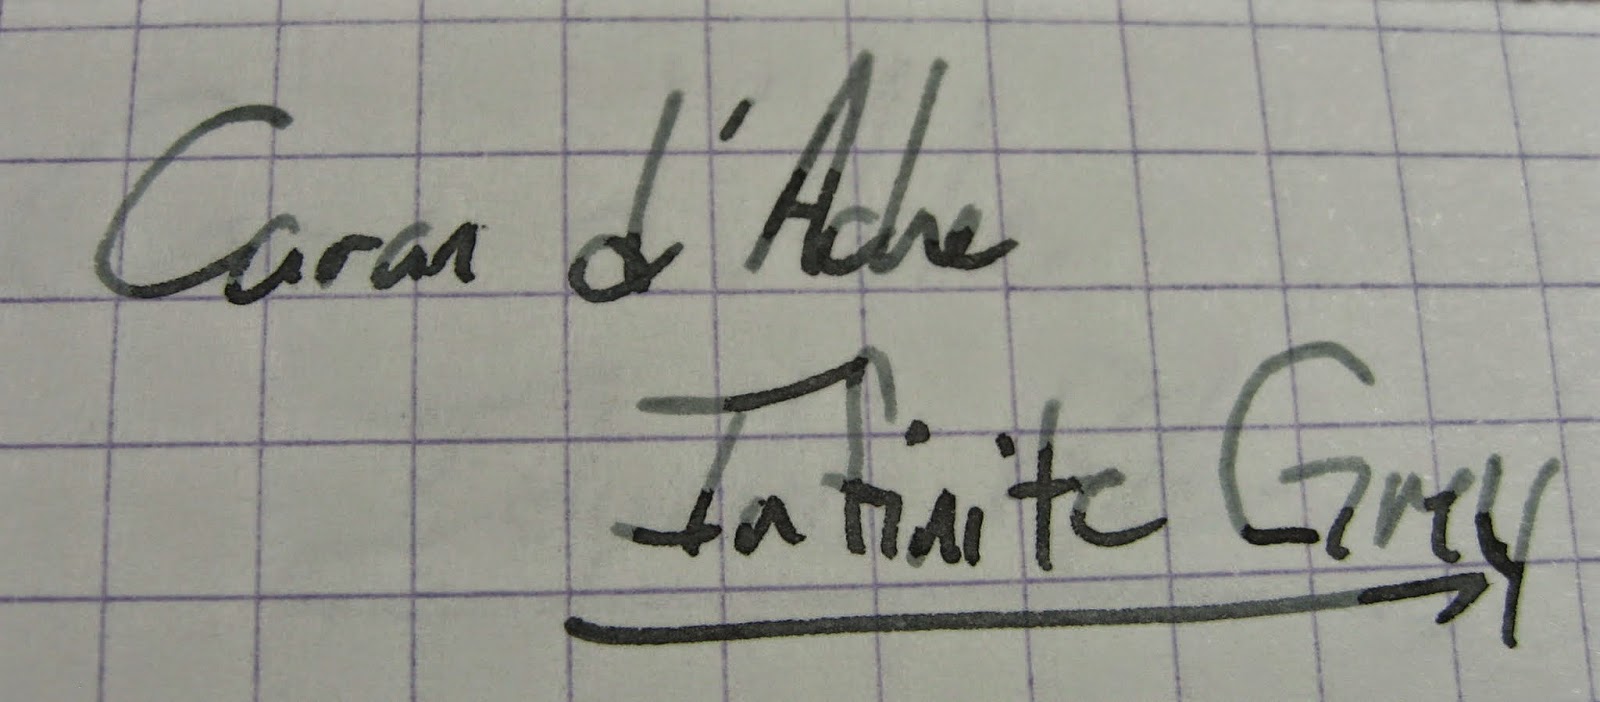 Caran d'Ache
Infinite Grey